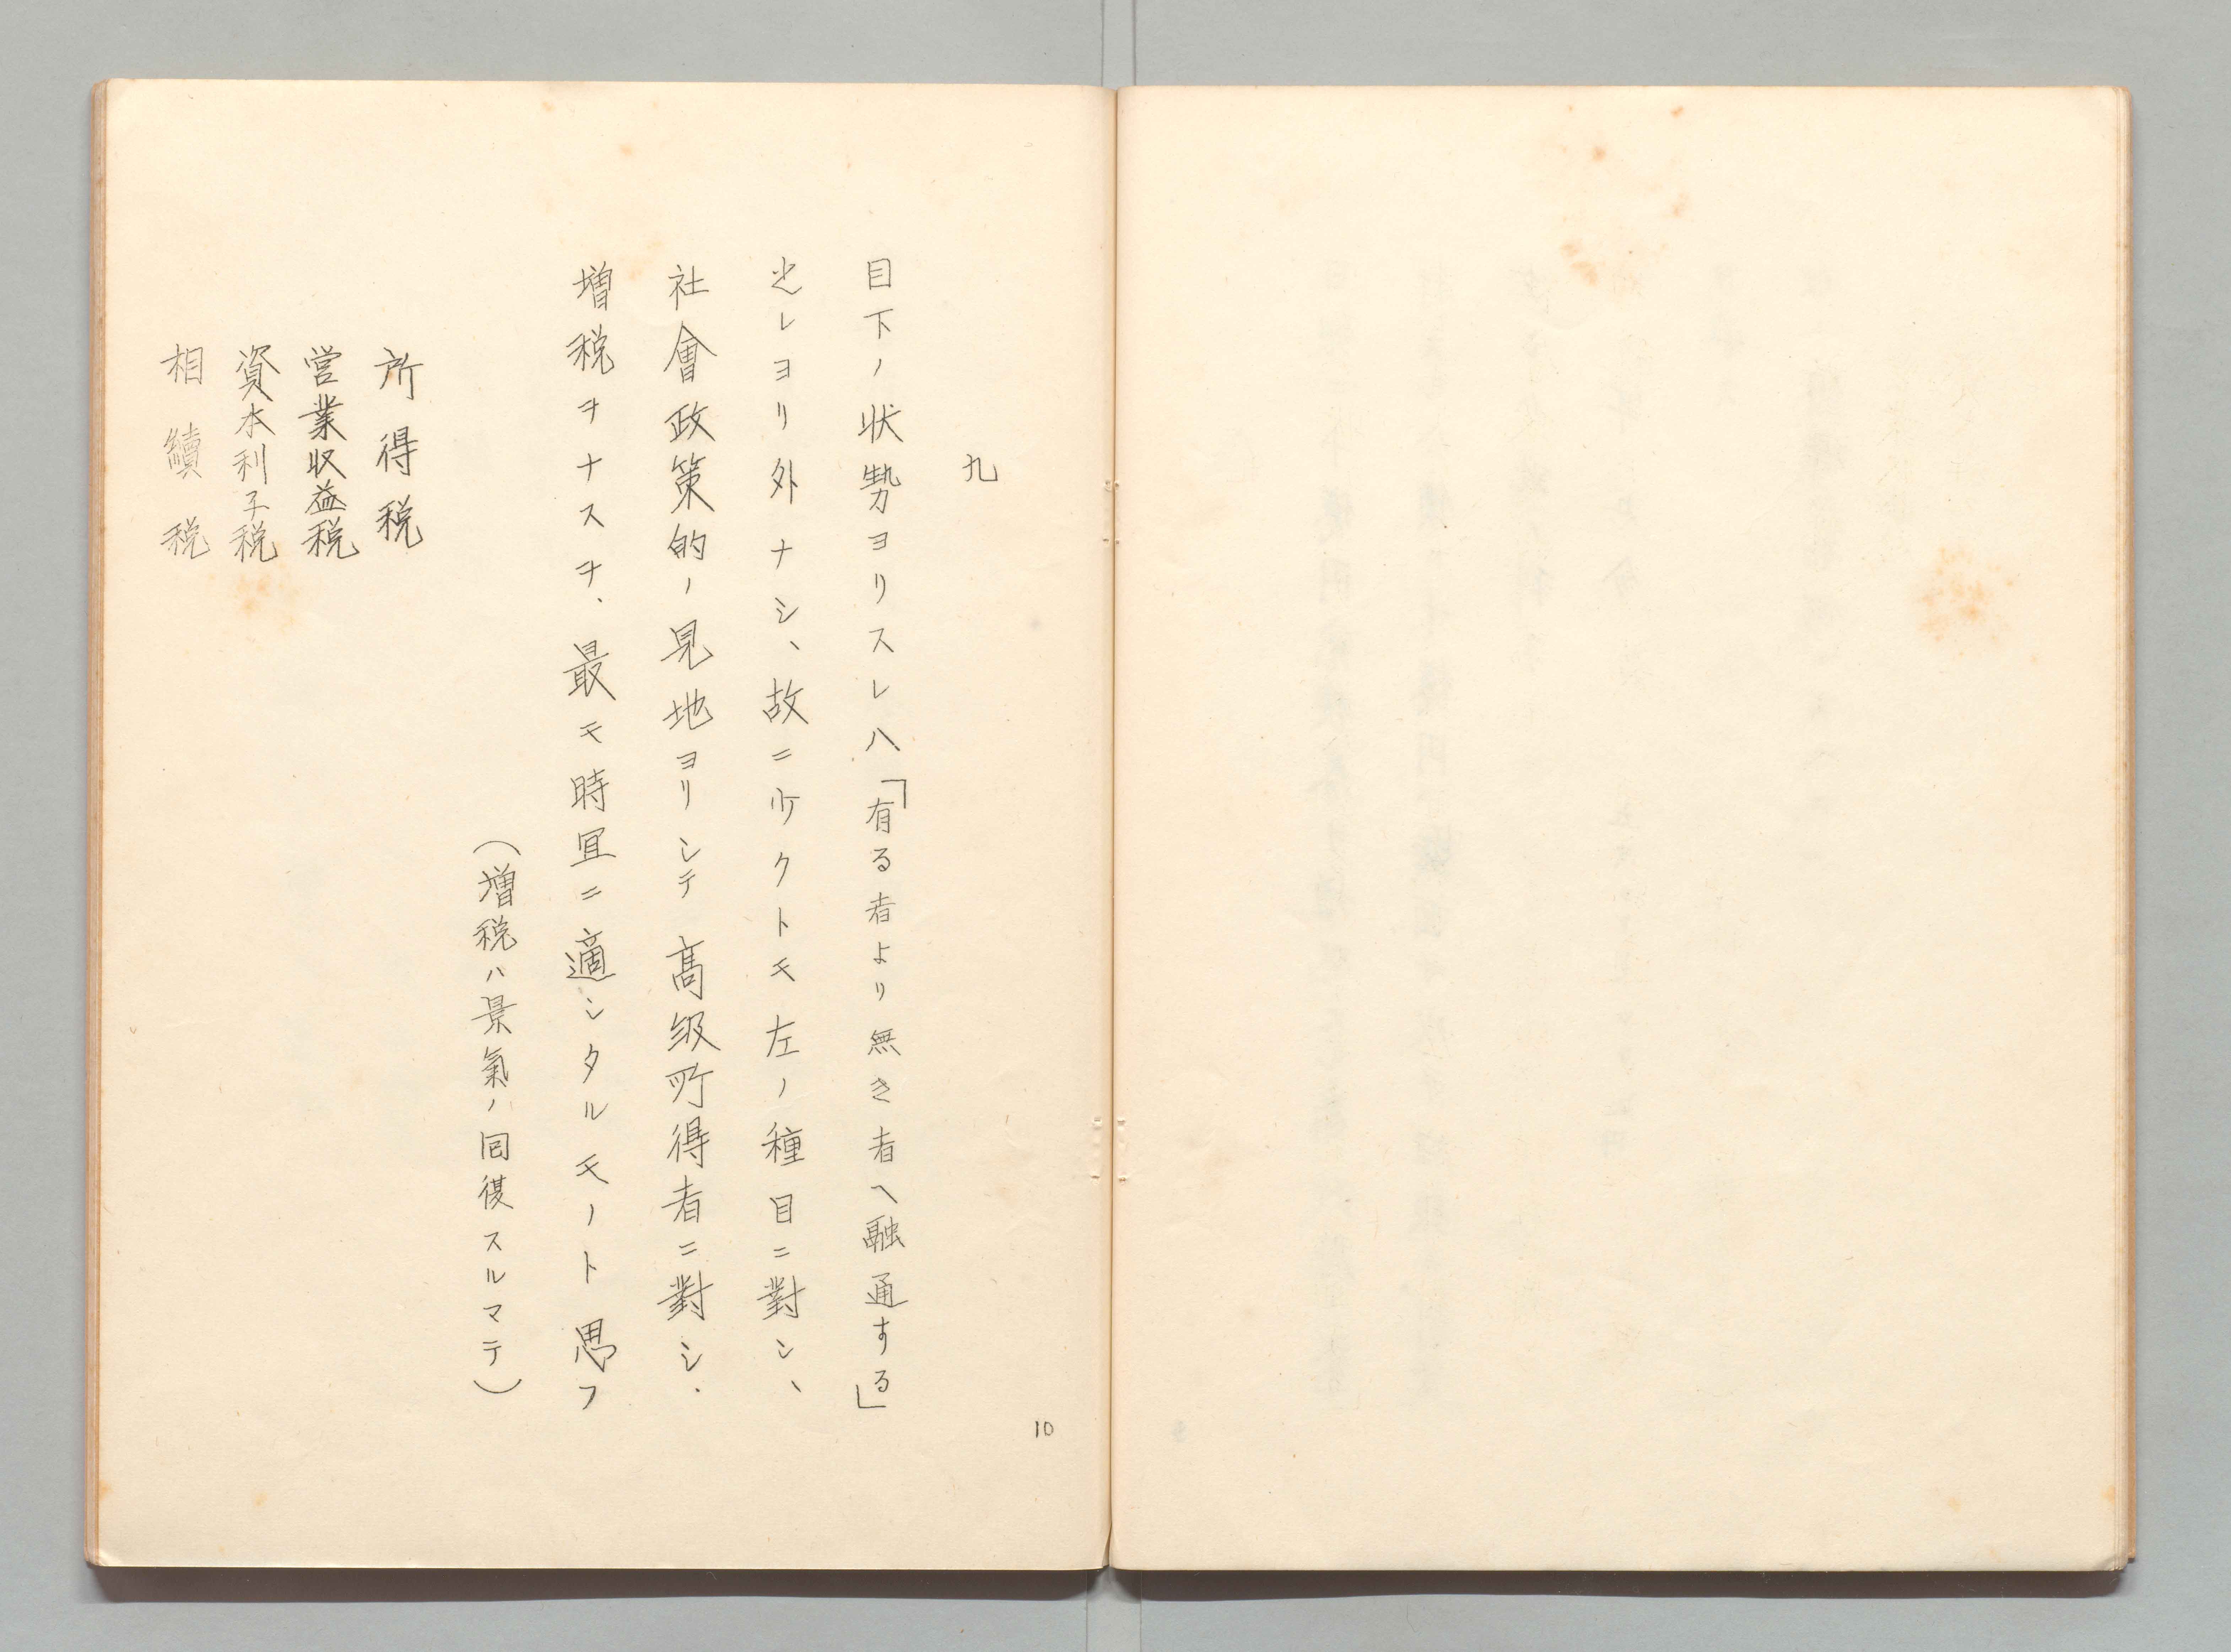 九
目下ノ状勢ヨリスレハ「有る者より無き者へ融通する」
之レヨリ外ナシ、故ニ少クトモ左ノ種目ニ對シ、
社會政策的ノ見地ヨリシテ高級所得者ニ對シ、
増税ヲナスヲ、最モ時宜ニ適シタルモノト思フ
（増税ハ景氣ノ回復スルマテ）
所得税
営業収益税
資本利子税
相續税
10